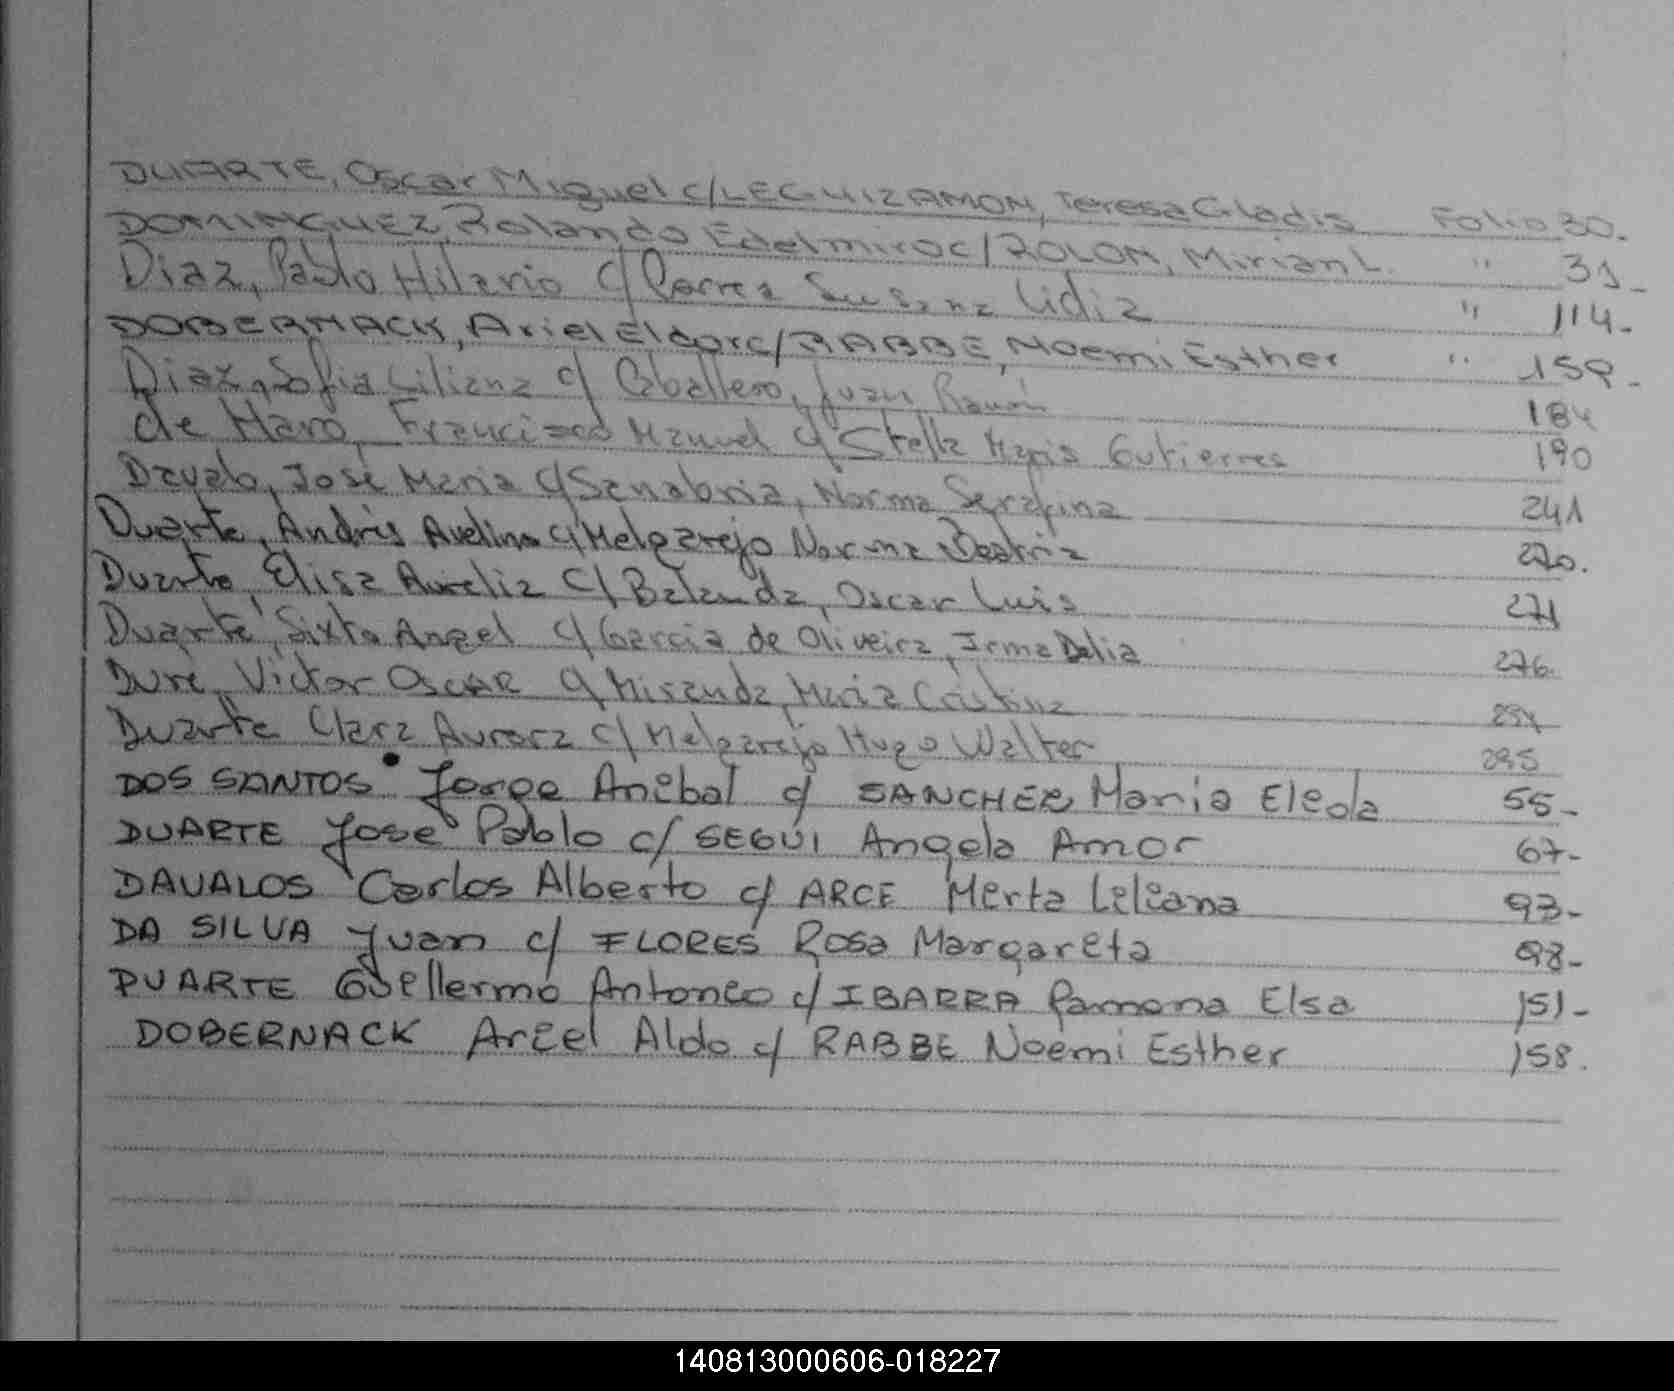 DUARTE, Oscar Miguel c/LEGUIZAMON, Teresa Gladis Folio 30.-
DOMINGUEZ, Rolando Edelmiro c/ROLON, Mirian L. " 31_
Diaz, Pablo Hilario c/ Correa Susana Lidia " 114.-
DOBERNACK, Ariel Eldor c/RABBE, Noemi Esther " 159.-
Diaz, Sofia Liliana c/ Caballero, Juan Ramón 184
de Haro, Francisco Manuel c/ Stella Maris Gutierres 190
Davalo, José Maria c/ Sanabria, Norma Serafina 241
Duarte, Andrés Avelino c/ Melgarejo Norma Beatriz 270.
Duarte, Elisa Aurelia c/ Balanda, Oscar Luis 271
Duarte, Sixto Angel c/ Garcia de Oliveira, Irma Delia 276
Duré, Victor Oscar c/ Miranda, Maria Cristina
Duarte Clara Aurora c/ Melgarejo Hugo Walter 295
DOS SANTOS Jorge Anibal c/ SANCHEZ Maria Eleda 55-
DUARTE José Pablo c/ SEGUI Angela Amor 67-
DAVALOS Carlos Alberto c/ ARCE Merta Liliana 93-
DA SILVA Juan c/ FLORES Rosa Margareta 98-
DUARTE Guellermo Antoneo c/ IBARRA Ramona Elsa 151-
DOBERNACK Ariel Aldo c/ RABBE Noemi Esther 158.
140813000606-018227